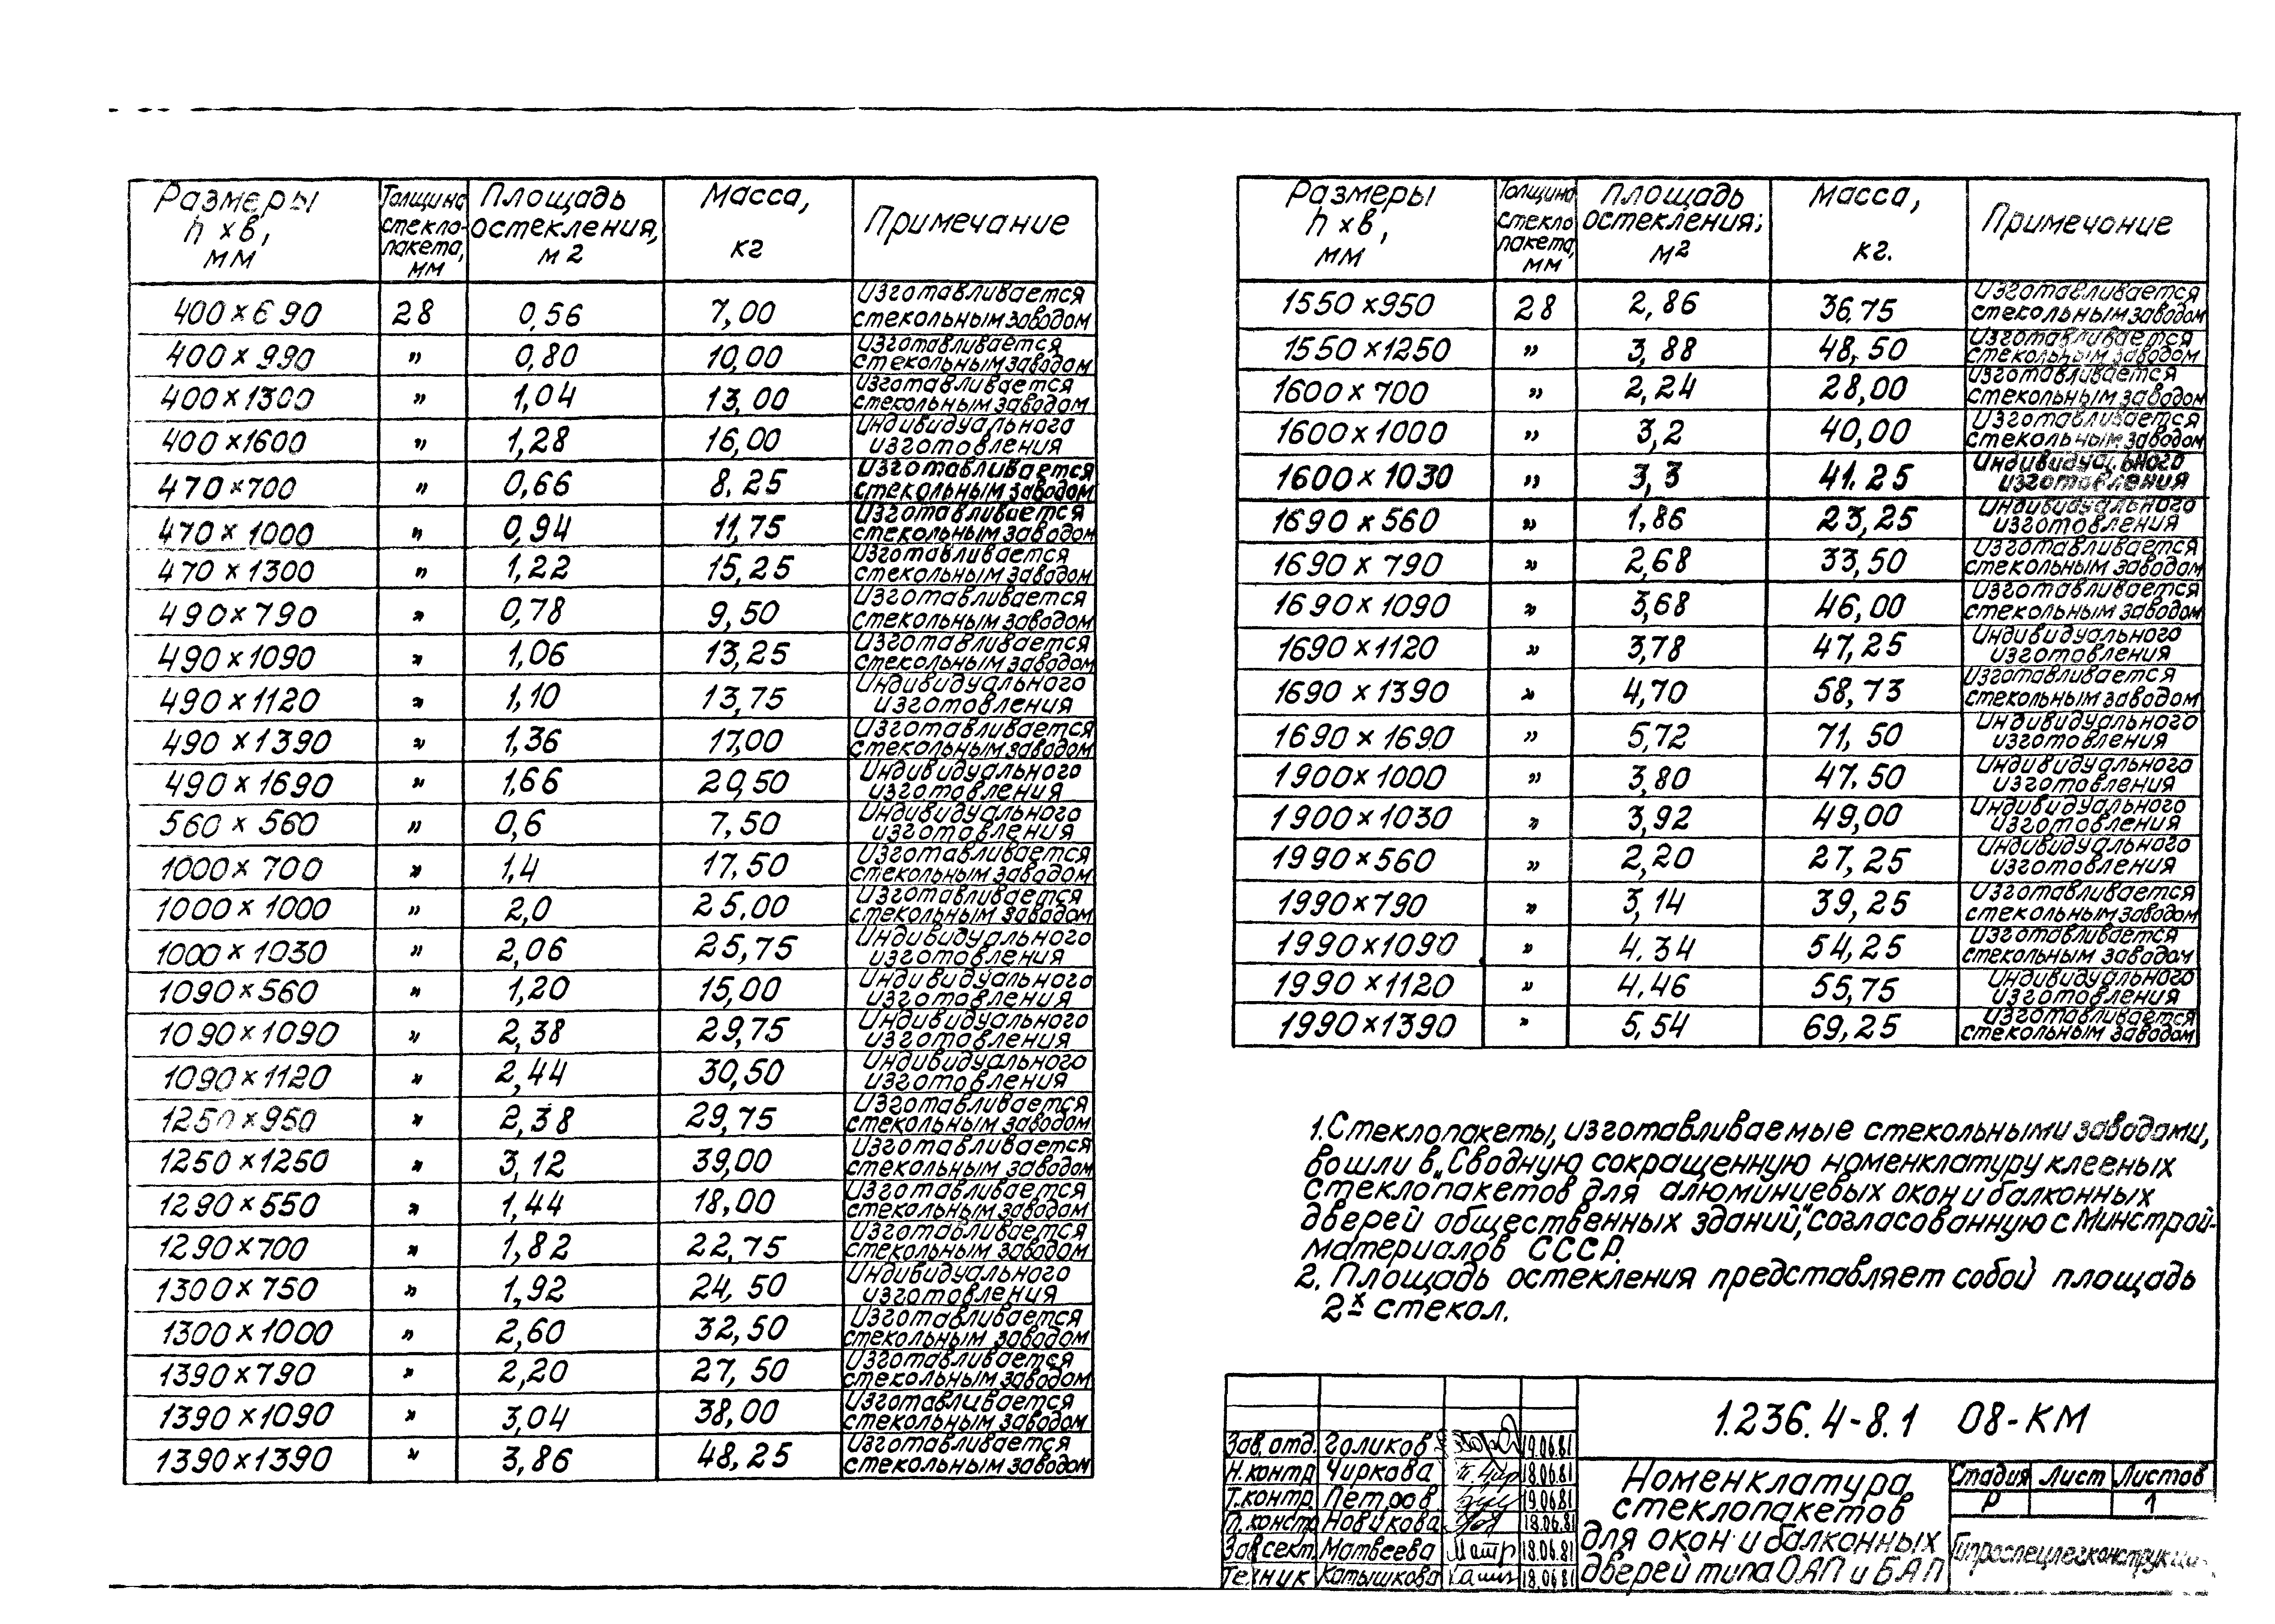 Размеры h×в, мм | Толщина стекло-пакета, мм | Площадь остекления, м2 | Масса, кг | Примечание
400×690 28 0,56 7,00 Изготавливается стекольным заводом
400×990 " 0,80 10,00 Изготавливается стекольным заводом
400×1300 " 1,04 13,00 Изготавливается стекольным заводом
400×1600 " 1,28 16,00 Индивидуального изготовления
470×700 " 0,66 8.25 Изготавливается стекольным заводом
470×1000 " 0,94 11,75 Изготавливается стекольным заводом
470×1300 " 1,22 15,25 Изготавливается стекольным заводом
490×790 " 0,78 9,50 Изготавливается стекольным заводом
490×1090 " 1,06 13,25 Изготавливается стекольным заводом
490×1120 " 1,10 13,75 Индивидуального изготовления
490×1390 " 1,36 17,00 Изготавливается стекольным заводом
490×1690 " 1,66 20,50 Индивидуального изготовления
560×560 " 0,6 7,50 Индивидуального изготовления
1000×700 " 1,4 17,50 Изготавливается стекольным заводом
1000×1000 " 2,0 25,00 Изготавливается стекольным заводом
1000×1030 " 2,06 25,75 Индивидуального изготовления
1090×560 " 1,20 15,00 Индивидуального изготовления
1090×1090 " 2,38 29,75 Индивидуального изготовления
1090×1120 " 2,44 30,50 Индивидуального изготовления
1250×950 " 2,38 29,75 Изготавливается стекольным заводом
1250×1250 " 3,12 39,00 Изготавливается стекольным заводом
1290×550 " 1,44 18,00 Изготавливается стекольным заводом
1290×700 " 1,82 22,75 Изготавливается стекольным заводом
1300×750 " 1,92 24,50 Индивидуального изготовления
1300×1000 " 2,60 32,50 Изготавливается стекольным заводом
1390×790 " 2,20 27,50 Изготавливается стекольным заводом
1390×1090 " 3,04 38,00 Изготавливается стекольным заводом
1390×1390 " 3,86 48,25 Изготавливается стекольным заводом
Размеры h×в, мм | Толщина стекло пакета, мм | Площадь остекления, м2 | Масса, кг. | Примечание
1550×950 28 2,86 36,75 Изготавливается стекольным заводом
1550×1250 " 3,88 48,50 Изготавливается стекольным заводом
1600×700 " 2,24 28,00 Изготавливается стекольным заводом
1600×1000 " 3,2 40,00 Изготавливается стекольным заводом
1600×1030 " 3,3 41.25 Индивидуального изготовления
1690×560 " 1,86 23,25 Индивидуального изготовления
1690×790 " 2,68 33,50 Изготавливается стекольным заводом
1690×1090 " 3,68 46,00 Изготавливается стекольным заводом
1690×1120 " 3,78 47,25 Индивидуального изготовления
1690×1390 " 4,70 58,73 Изготавливается стекольным заводом
1690×1690 " 5,72 71,50 Индивидуального изготовления
1900×1000 " 3,80 47.50 Индивидуального изготовления
1900×1030 " 3,92 49,00 Индивидуального изготовления
1990×560 " 2,20 27,25 Индивидуального изготовления
1990×790 " 3,14 39,25 Изготавливается стекольным заводом
1990×1090 " 4.34 54,25 Изготавливается стекольным заводом
1990×1120 " 4.46 55,75 Индивидуального изготовления
1990×1390 " 5,54 69,25 Изготавливается стекольным заводом
1. Стеклопакеты, изготавливаемые стекольными заводами,
вошли в „Сводную сокращенную номенклатуру клееных
стеклопакетов для алюминиевых окон и балконных
дверей общественных зданий," согласованную с Минстрой-
материалов СССР.
2. Площадь остекления представляет собой площадь
2х стекол.
1.236.4-8.1 08-КМ
Зав. отд. Голиков 19.06.81
Н.контр Чиркова 18.06.81
Т.контр. Петров 19.06.81
Новикова 18.06.81
Зав сект. Матвеева 18.06.81
Техник Катышкова 18.06.81
Номенклатура
стеклопакетов
для окон и балконных
дверей типа ОАП и БАП
Стадия Лист Листов
Р 1
Гипроспецлегконструкция